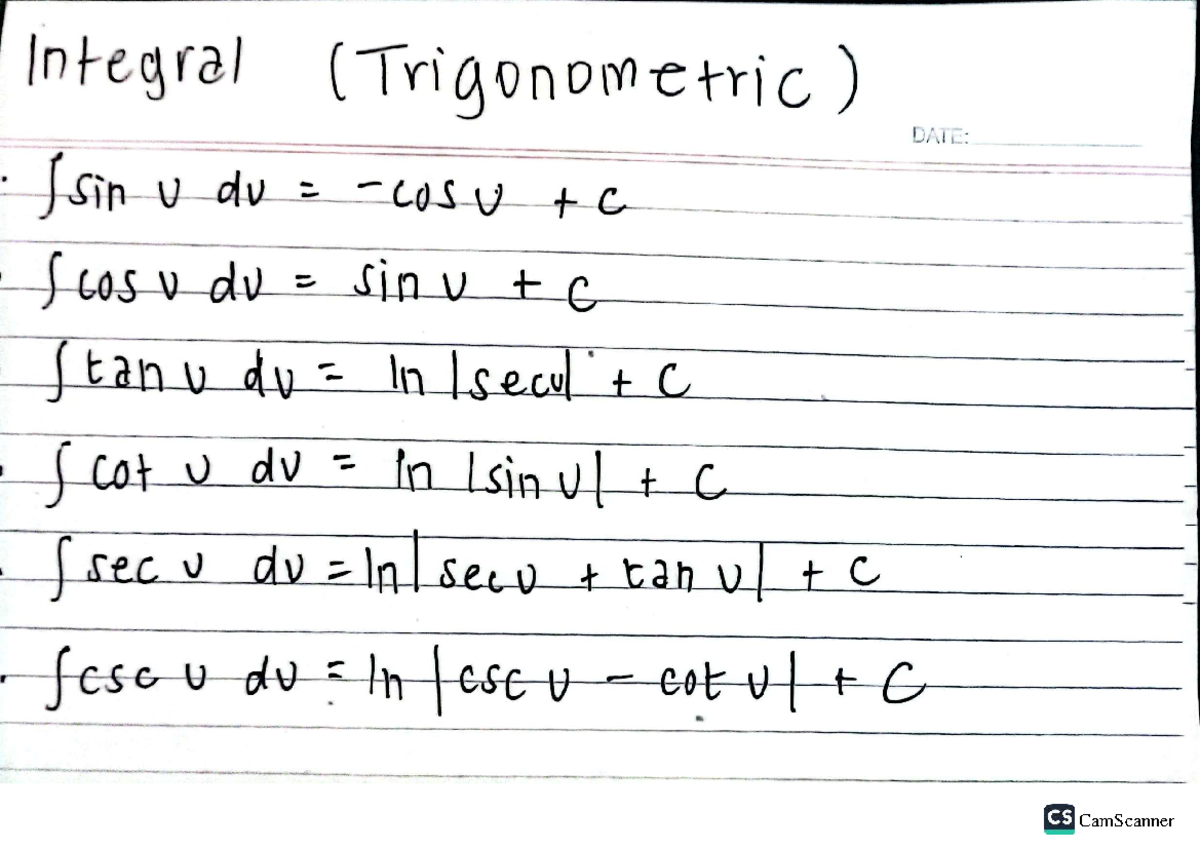 Integral (Trigonometric)
DATE:
· ∫sin u du = -cos u + C
· ∫cos u du = sin u + C
∫tan u du = ln |sec u| + C
· ∫cot u du = ln |sin u| + C
· ∫sec u du = ln|sec u + tan u| + C
· ∫csc u du = ln |csc u - cot u| + C
CS CamScanner